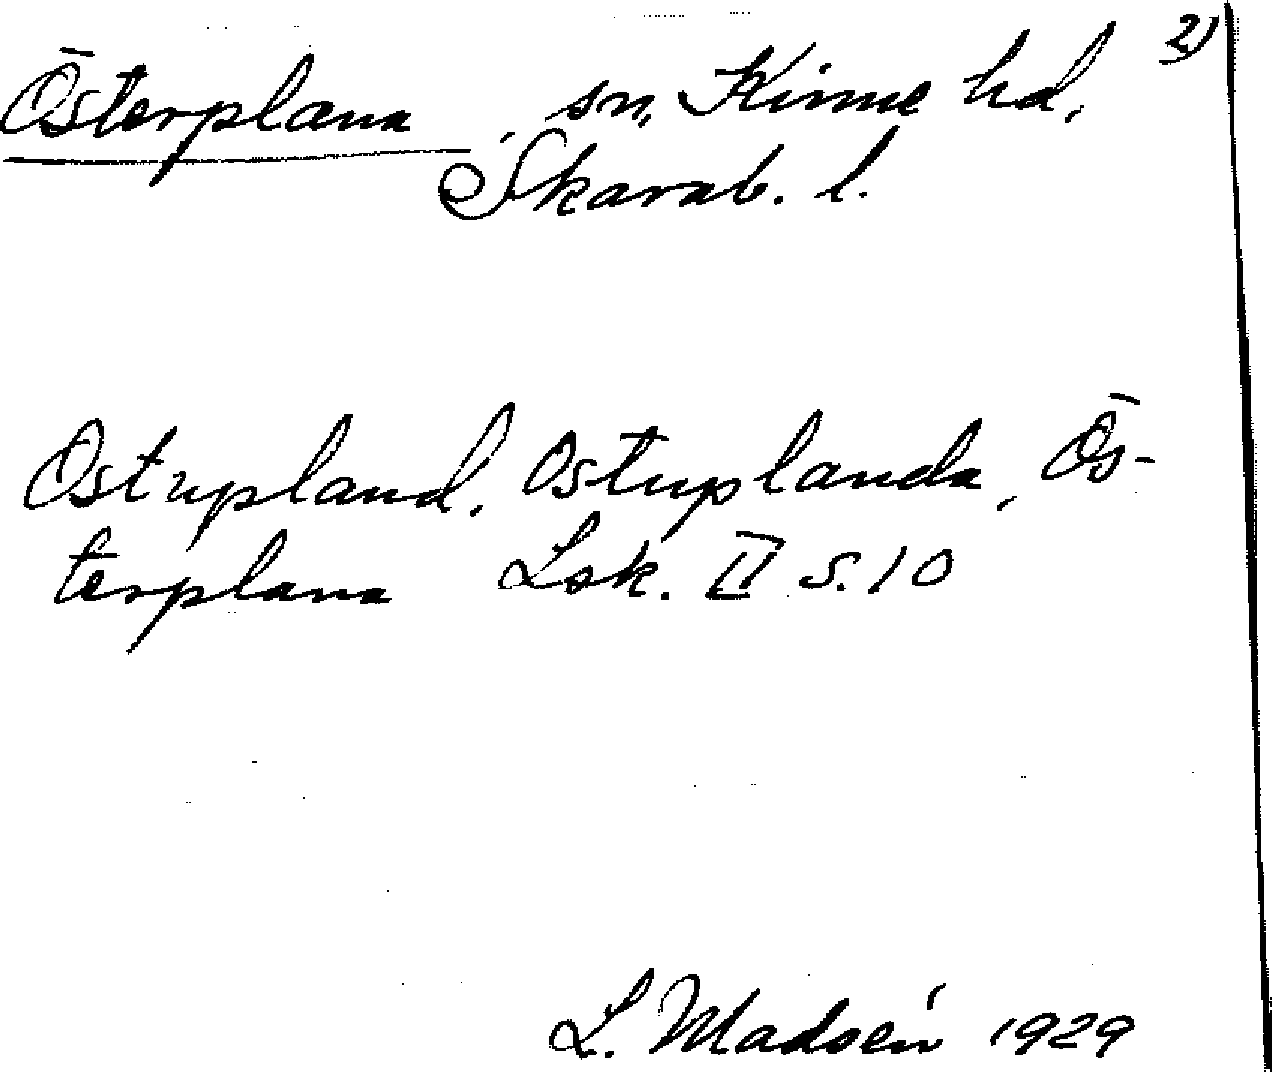 2)
Österplana, sn, Kinne hd,
Skarab. l.
Ostrpland, Ostuplanda, Ös-
terplana Lsk. II s. 10
L. Madsén 1929